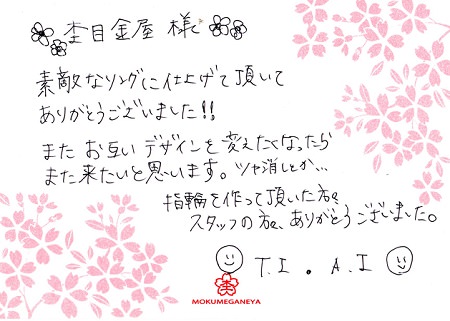 杢目金屋 様
素敵なリングに仕上げて頂いて
ありがとうございました!!
また お互い デザインを変えたくなったら
また来たいと思います。ツヤ消しとか…
指輪を作って頂いた方々
スタッフの方々、ありがとうございました。
T.I . A.I
MOKUMEGANEYA